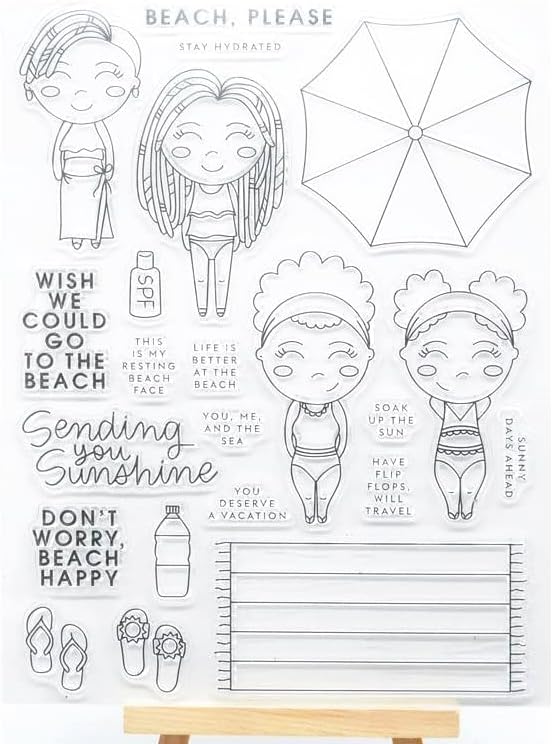 BEACH, PLEASE
STAY HYDRATED
WISH
WE
COULD
GO
TO THE
BEACH
SPF
THIS
IS MY
RESTING
BEACH
FACE
LIFE IS
BETTER
AT THE
BEACH
Sending
you
Sunshine
YOU, ME,
AND THE
SEA
SOAK
UP THE
SUN
SUNNY
DAYS AHEAD
HAVE
FLIP
FLOPS,
WILL
TRAVEL
YOU
DESERVE
A VACATION
DON'T
WORRY,
BEACH
HAPPY